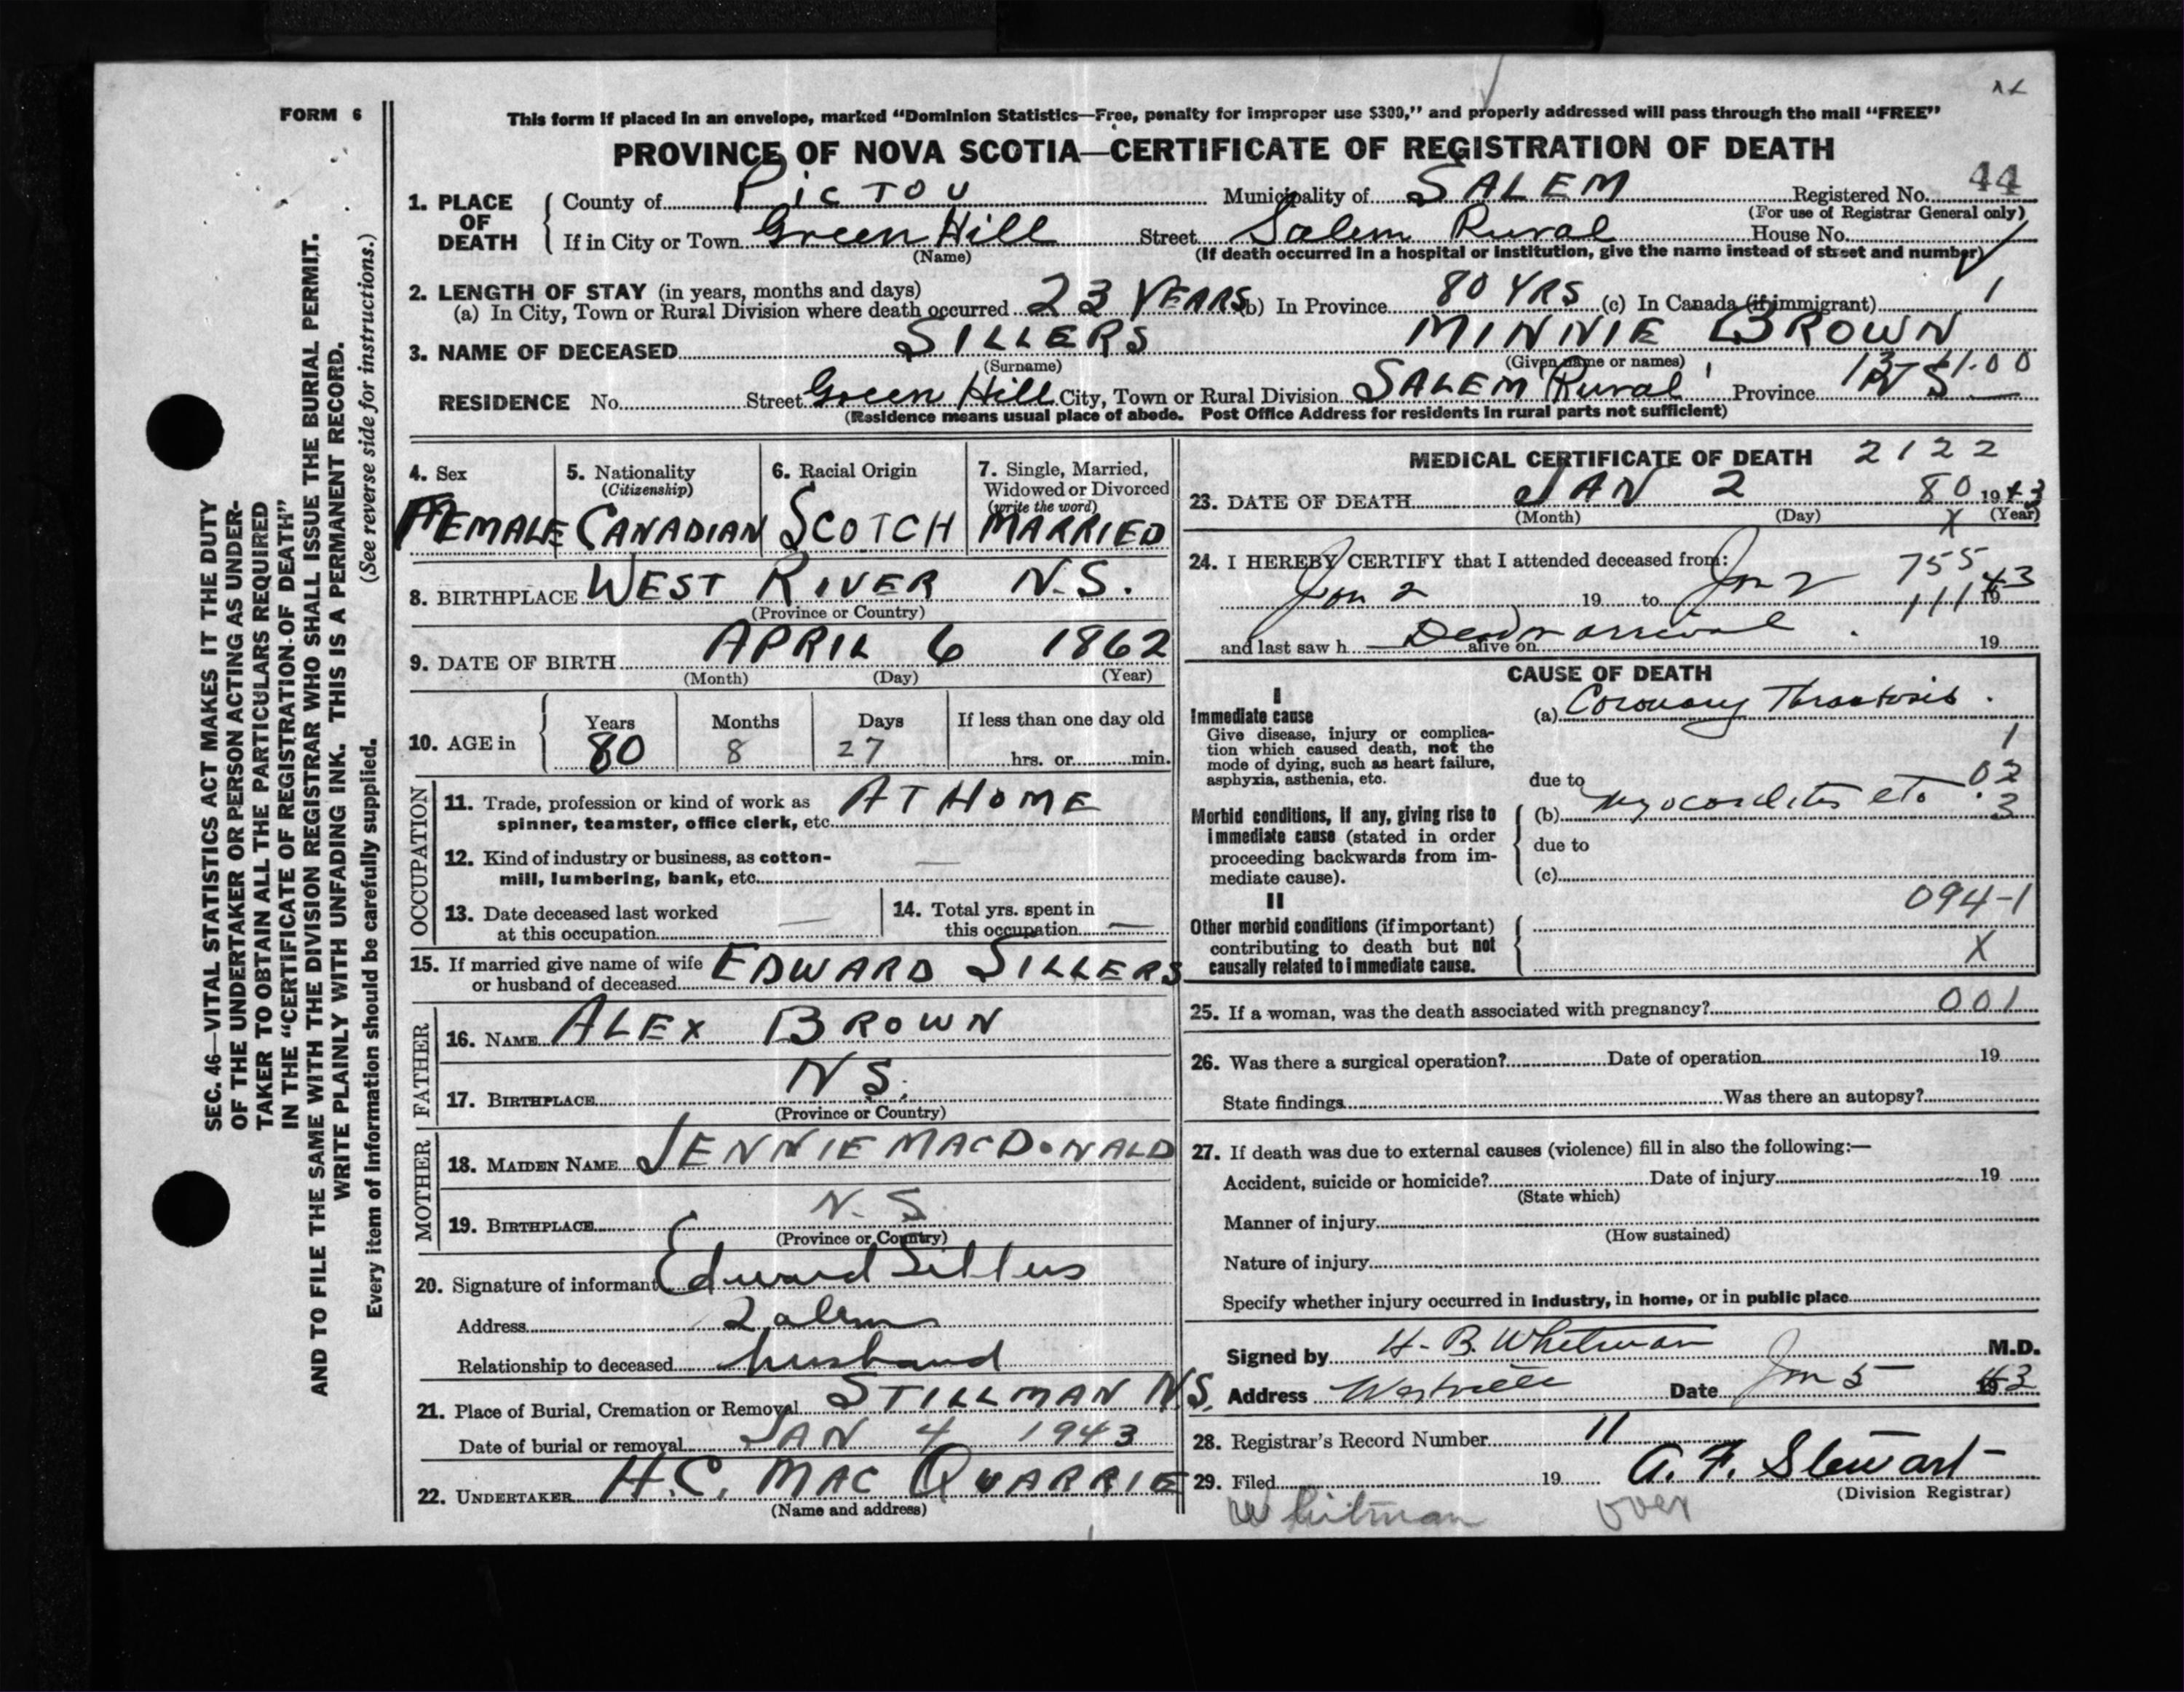 FORM 6
This form if placed in an envelope, marked “Dominion Statistics—Free, penalty for improper use $300,” and properly addressed will pass through the mail “FREE”
PROVINCE OF NOVA SCOTIA—CERTIFICATE OF REGISTRATION OF DEATH
1. PLACE OF DEATH
County of PICTOU Municipality of SALEM Registered No. 44
(For use of Registrar General only)
If in City or Town Green Hill Street Salem Rural House No.
(Name) (If death occurred in a hospital or institution, give the name instead of street and number)
2. LENGTH OF STAY (in years, months and days)
(a) In City, Town or Rural Division where death occurred 23 YEARS (b) In Province 80 YRS (c) In Canada (if immigrant) 1
3. NAME OF DECEASED SILLERS MINNIE BROWN
(Surname) (Given name or names)
RESIDENCE No. Street Green Hill City, Town or Rural Division SALEM Rural Province N S
(Residence means usual place of abode. Post Office Address for residents in rural parts not sufficient)
4. Sex
FEMALE
5. Nationality
(Citizenship)
CANADIAN
6. Racial Origin
SCOTCH
7. Single, Married, Widowed or Divorced
(write the word)
MARRIED
8. BIRTHPLACE WEST RIVER N.S.
(Province or Country)
9. DATE OF BIRTH APRIL 6 1862
(Month) (Day) (Year)
10. AGE in
Years Months Days If less than one day old
80 8 27 hrs. or min.
OCCUPATION
11. Trade, profession or kind of work as AT HOME
spinner, teamster, office clerk, etc.
12. Kind of industry or business, as cotton- —
mill, lumbering, bank, etc.
13. Date deceased last worked —
at this occupation
14. Total yrs. spent in
this occupation —
15. If married give name of wife EDWARD SILLERS
or husband of deceased
FATHER
16. NAME ALEX BROWN
17. BIRTHPLACE N S.
(Province or Country)
MOTHER
18. MAIDEN NAME JENNIE MACDONALD
19. BIRTHPLACE N. S
(Province or Country)
20. Signature of informant Edward Sillers
Address Salem
Relationship to deceased husband
21. Place of Burial, Cremation or Removal STILLMAN N.S.
Date of burial or removal JAN 4 1943
22. UNDERTAKER H.C. MAC QUARRIE
(Name and address)
MEDICAL CERTIFICATE OF DEATH 2122
23. DATE OF DEATH JAN 2 80 1943
(Month) (Day) X (Year)
24. I HEREBY CERTIFY that I attended deceased from: 755
Jan 2 19 to Jan 2 111 1943
and last saw h Dead on arrival alive on 19
CAUSE OF DEATH
I
Immediate cause
Give disease, injury or complica-
tion which caused death, not the
mode of dying, such as heart failure,
asphyxia, asthenia, etc.
(a) Coronary Thrombosis
1
due to 02
Morbid conditions, if any, giving rise to
immediate cause (stated in order
proceeding backwards from im-
mediate cause).
(b) Myocarditis etc 3
due to
(c)
094-1
II
Other morbid conditions (if important)
contributing to death but not
causally related to immediate cause.
X
25. If a woman, was the death associated with pregnancy? 001
26. Was there a surgical operation? Date of operation 19
State findings Was there an autopsy?
27. If death was due to external causes (violence) fill in also the following:—
Accident, suicide or homicide? Date of injury 19
(State which)
Manner of injury
(How sustained)
Nature of injury
Specify whether injury occurred in industry, in home, or in public place
Signed by H. B. Whitman M.D.
Address Westville Date Jan 5 1943
28. Registrar's Record Number 11
29. Filed 19 A. F. Stewart
(Division Registrar)
Whitman over
SEC. 46—VITAL STATISTICS ACT MAKES IT THE DUTY
OF THE UNDERTAKER OR PERSON ACTING AS UNDER-
TAKER TO OBTAIN ALL THE PARTICULARS REQUIRED
IN THE “CERTIFICATE OF REGISTRATION OF DEATH”
AND TO FILE THE SAME WITH THE DIVISION REGISTRAR WHO SHALL ISSUE THE BURIAL PERMIT.
WRITE PLAINLY WITH UNFADING INK. THIS IS A PERMANENT RECORD.
(See reverse side for instructions.)
Every item of information should be carefully supplied.